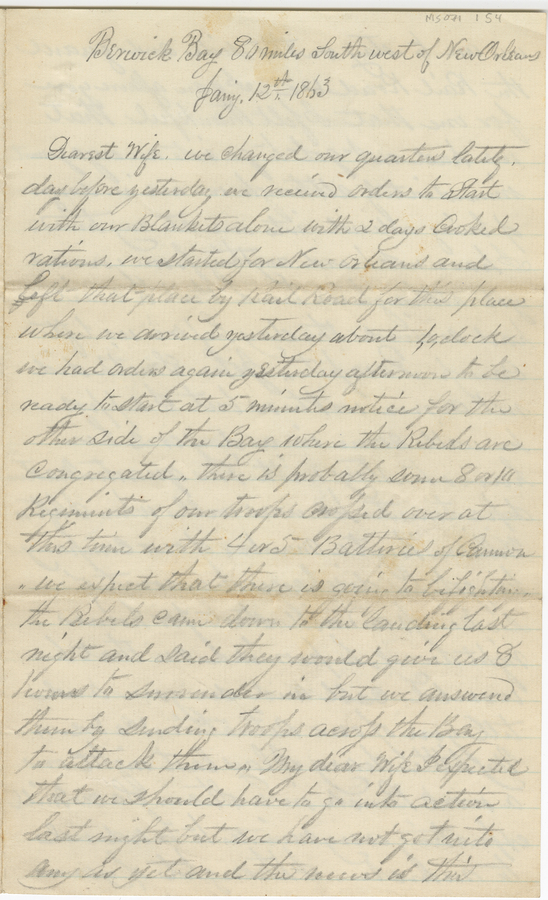 MS071 1 54
Berwick Bay 80 miles South west of New Orleans
Jany. 12th. 1863
Dearest Wife. we changed our quarters lately.
day before yesterday we received orders to start
with our Blankets alone with 2 days Cooked
rations. we started for New Orleans and
left that place by Rail Road for this place
where we arrived yesterday about oclock
we had orders again yesterday afternoon to be
ready to start at 5 minutes notice for the
other side of the Bay where the Rebels are
Congregated „ there is probably some 8 or 10
Regiments of our troops crossed over at
this time with 4 or 5 Batteries of Cannon
„ we expect that there is going to be fighting.
the Rebels came down to the landing last
night and said they would give us 8
hours to surrender in but we answered
them by sending troops across the Bay
to attack them „ My dear Wife I expected
that we should have to go into action
last night but we have not got into
any as yet and the news is this